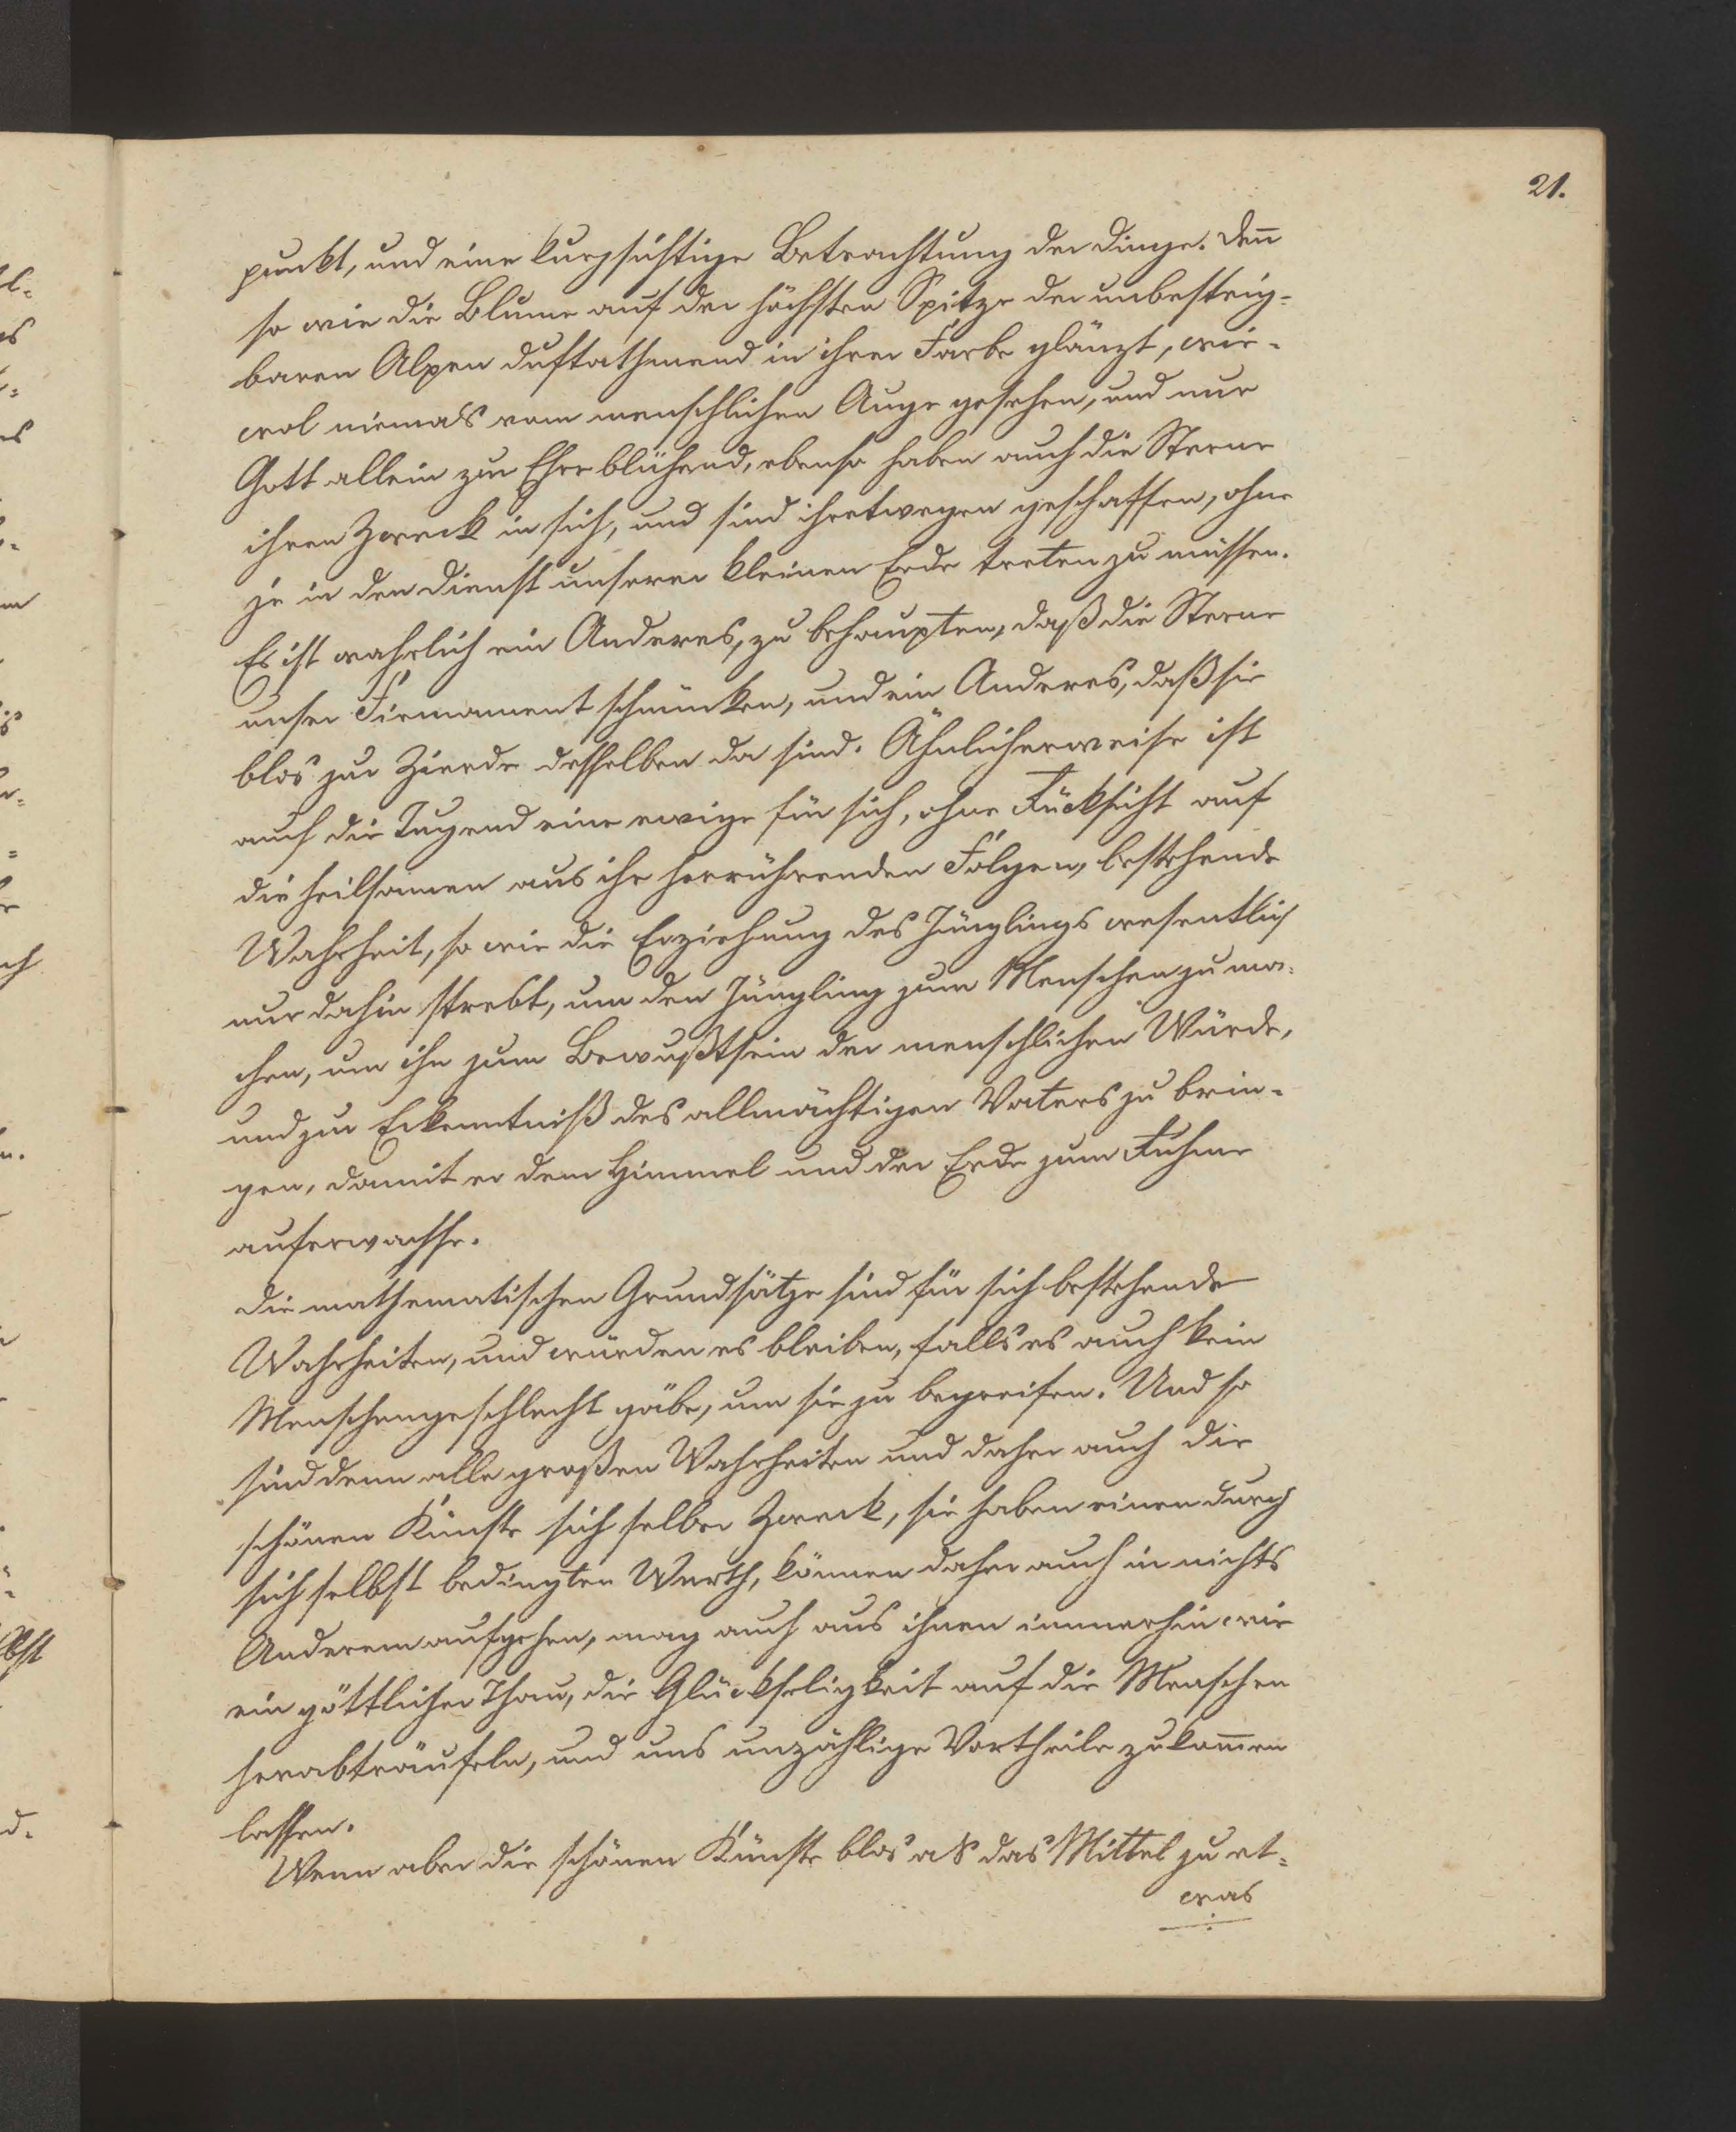 21.
punkt, und eine kurzsichtige Betrachtung der Dinge. Deñ
so wie die Blume auf der höchsten Spitze der unbesteig-
baren Alpen duftathmend in ihrer Farbe glänzt, wie-
wol niemals vom menschlichen Auge gesehen, und nur
Gott allein zur Ehre blühend, ebenso haben auch die Sterne
ihren Zweck in sich, und sind ihretwegen geschaffen, ohne
je in den Dienst unserer kleinen Erde treten zu müssen.
Es ist wahrlich ein Anderes, zu behaupten, daß die Sterne
unser Firmament schmücken, und ein Anderes, daß sie
blos zur Zierde desselben da sind. Ähnlicherweise ist
auch die Tugend eine ewige für sich, ohne Rücksicht auf
die heilsamen aus ihr herrührenden Folgen, bestehende
Wahrheit, so wie die Erziehung des Jünglings wesentlich
nur dahin strebt, um den Jüngling zum Menschen zu ma-
chen, um ihn zum Bewußtsein der menschlichen Würde,
und zur Erkenntniß des allmächtigen Vaters zu brin-
gen, damit er dem Himmel und der Erde zum Ruhme
auferwachse.
Die mathematischen Grundsätze sind für sich bestehende
Wahrheiten, und würden es bleiben, falls es auch kein
Menschengeschlecht gäbe, um sie zu begreifen. Und so
sind denn alle großen Wahrheiten und daher auch die
schönen Künste sich selber Zweck, sie haben einen durch
sich selbst bedingten Werth, können daher auch in nichts
Anderem aufgehen, mag auch aus ihnen immerhin wie
ein göttlicher Thau, die Glückseligkeit auf die Menschen
herabträufeln, und uns unzählige Vortheile zukom̃en
lassen.
Wenn aber die schönen Künste blos als das Mittel zu et-
was